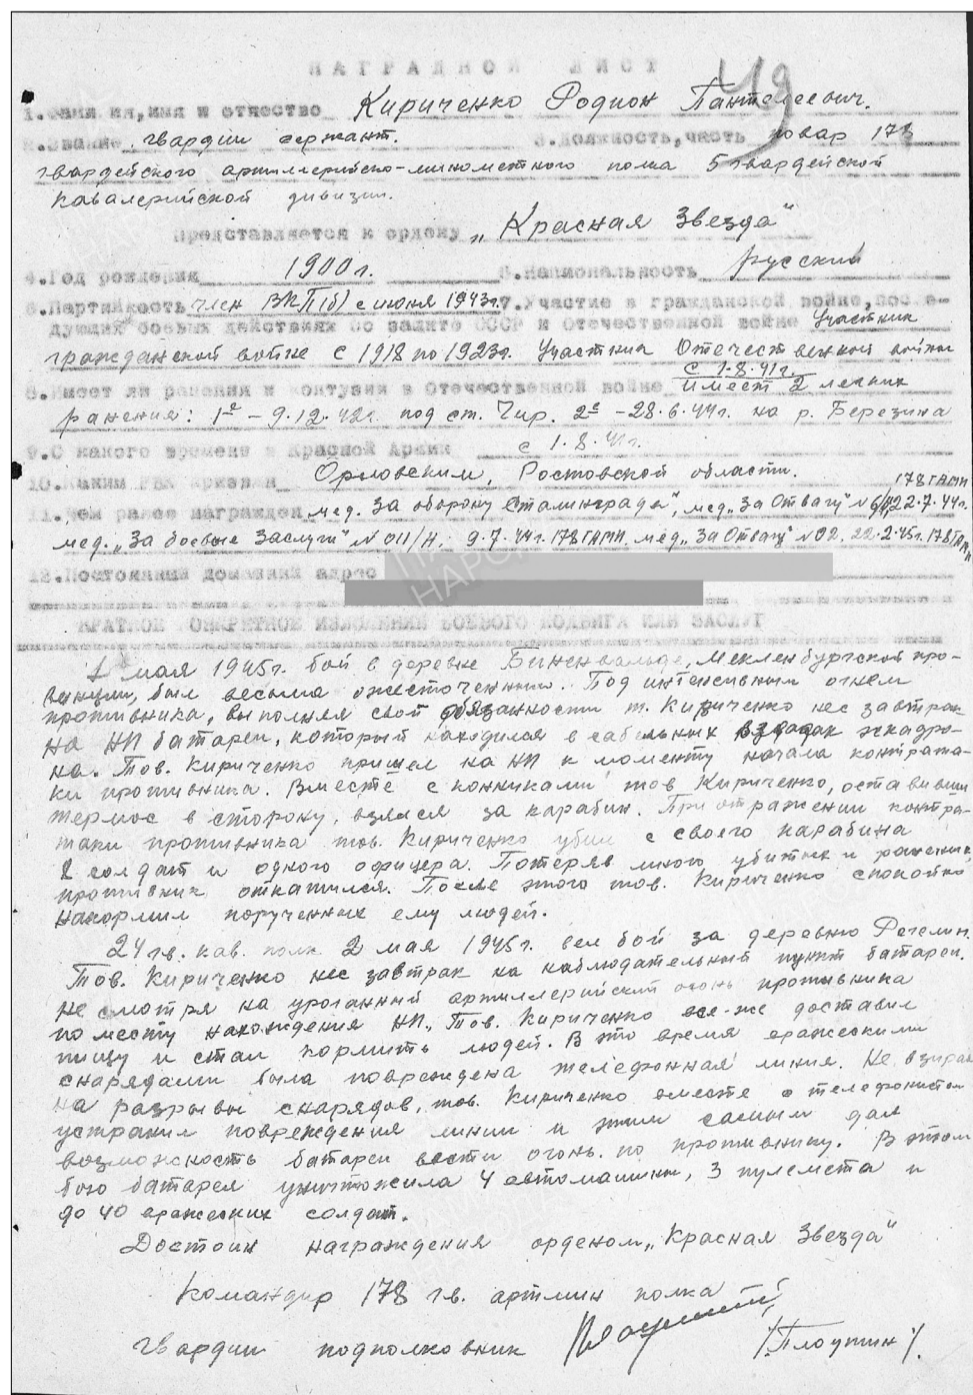 НАГРАДНОЙ ЛИСТ
49
1. Фамилия, имя и отчество Кириченко Родион Пантелеевич.
2. Звание гвардии сержант. 3. Должность, часть повар 178
гвардейского артиллерийско-минометного полка 5 гвардейской
кавалерийской дивизии.
Представляется к ордену „Красная Звезда"
4. Год рождения 1900 г. 5. Национальность русский
6. Партийность член ВКП(б) с июня 1943г. 7. Участие в гражданской войне, после-
дующих боевых действиях по защите СССР и отечественной войне Участник
гражданской войне с 1918 по 1923г. Участник Отечественной войны
с 1.8.41г.
8. Имеет ли ранения и контузии в отечественной войне имеет 2 легких
ранения: 1е – 9.12.42г. под ст. Чир. 2е – 28.6.44г. на р. Березина
9. С какого времени в Красной Армии с 1.8.41г.
10. Каким РВК призван Орловским, Ростовской области.
178 ГАМП
11. Чем ранее награжден мед. За оборону Сталинграда", мед. „За Отвагу" № 22.7.44г.
мед. „За боевые Заслуги" № 011/Н, 9.7.44г. 178 ГАМП, мед. „За Отвагу" № 02, 22.2.45г. 178 ГАМП
12. Постоянный домашний адрес
КРАТКОЕ КОНКРЕТНОЕ ИЗЛОЖЕНИЕ БОЕВОГО ПОДВИГА ИЛИ ЗАСЛУГ
1 мая 1945г. бой в деревне Биненвальде, Мекленбургской про-
винции, был весьма ожесточенным. Под интенсивным огнем
противника, выполняя свои обязанности т. Кириченко нес завтрак
на НП батареи, который находился в сабельных взводах эскадро-
на. Тов. Кириченко пришел на НП к моменту начала контрата-
ки противника. Вместе с конниками тов Кириченко, оставивши
термос в сторону, взялся за карабин. При отражении контра-
таки противника тов. Кириченко убил с своего карабина
2 солдат и одного офицера. Потеряв много убитых и раненых,
противник откатился. После этого тов. Кириченко спокойно
накормил порученных ему людей.
24 гв. кав. полк 2 мая 1945г. вел бой за деревню Регелин.
Тов. Кириченко нес завтрак на наблюдательный пункт батареи.
Не смотря на ураганный артиллерийский огонь противника
по месту нахождения НП, Тов. Кириченко все-же доставил
пищу и стал кормить людей. В это время вражескими
снарядами была повреждена телефонная линия. Не взирая
на разрывы снарядов, тов. Кириченко вместе с телефонистом
устранил повреждения линии и этим самым дал
возможность батареи вести огонь по противнику. В этом
бою батарея уничтожила 4 автомашины, 3 пулемета и
до 40 вражеских солдат.
Достоин награждения орденом „Красная Звезда"
Командир 178 гв. артмин полка
гвардии подполковник /Плоутин/.